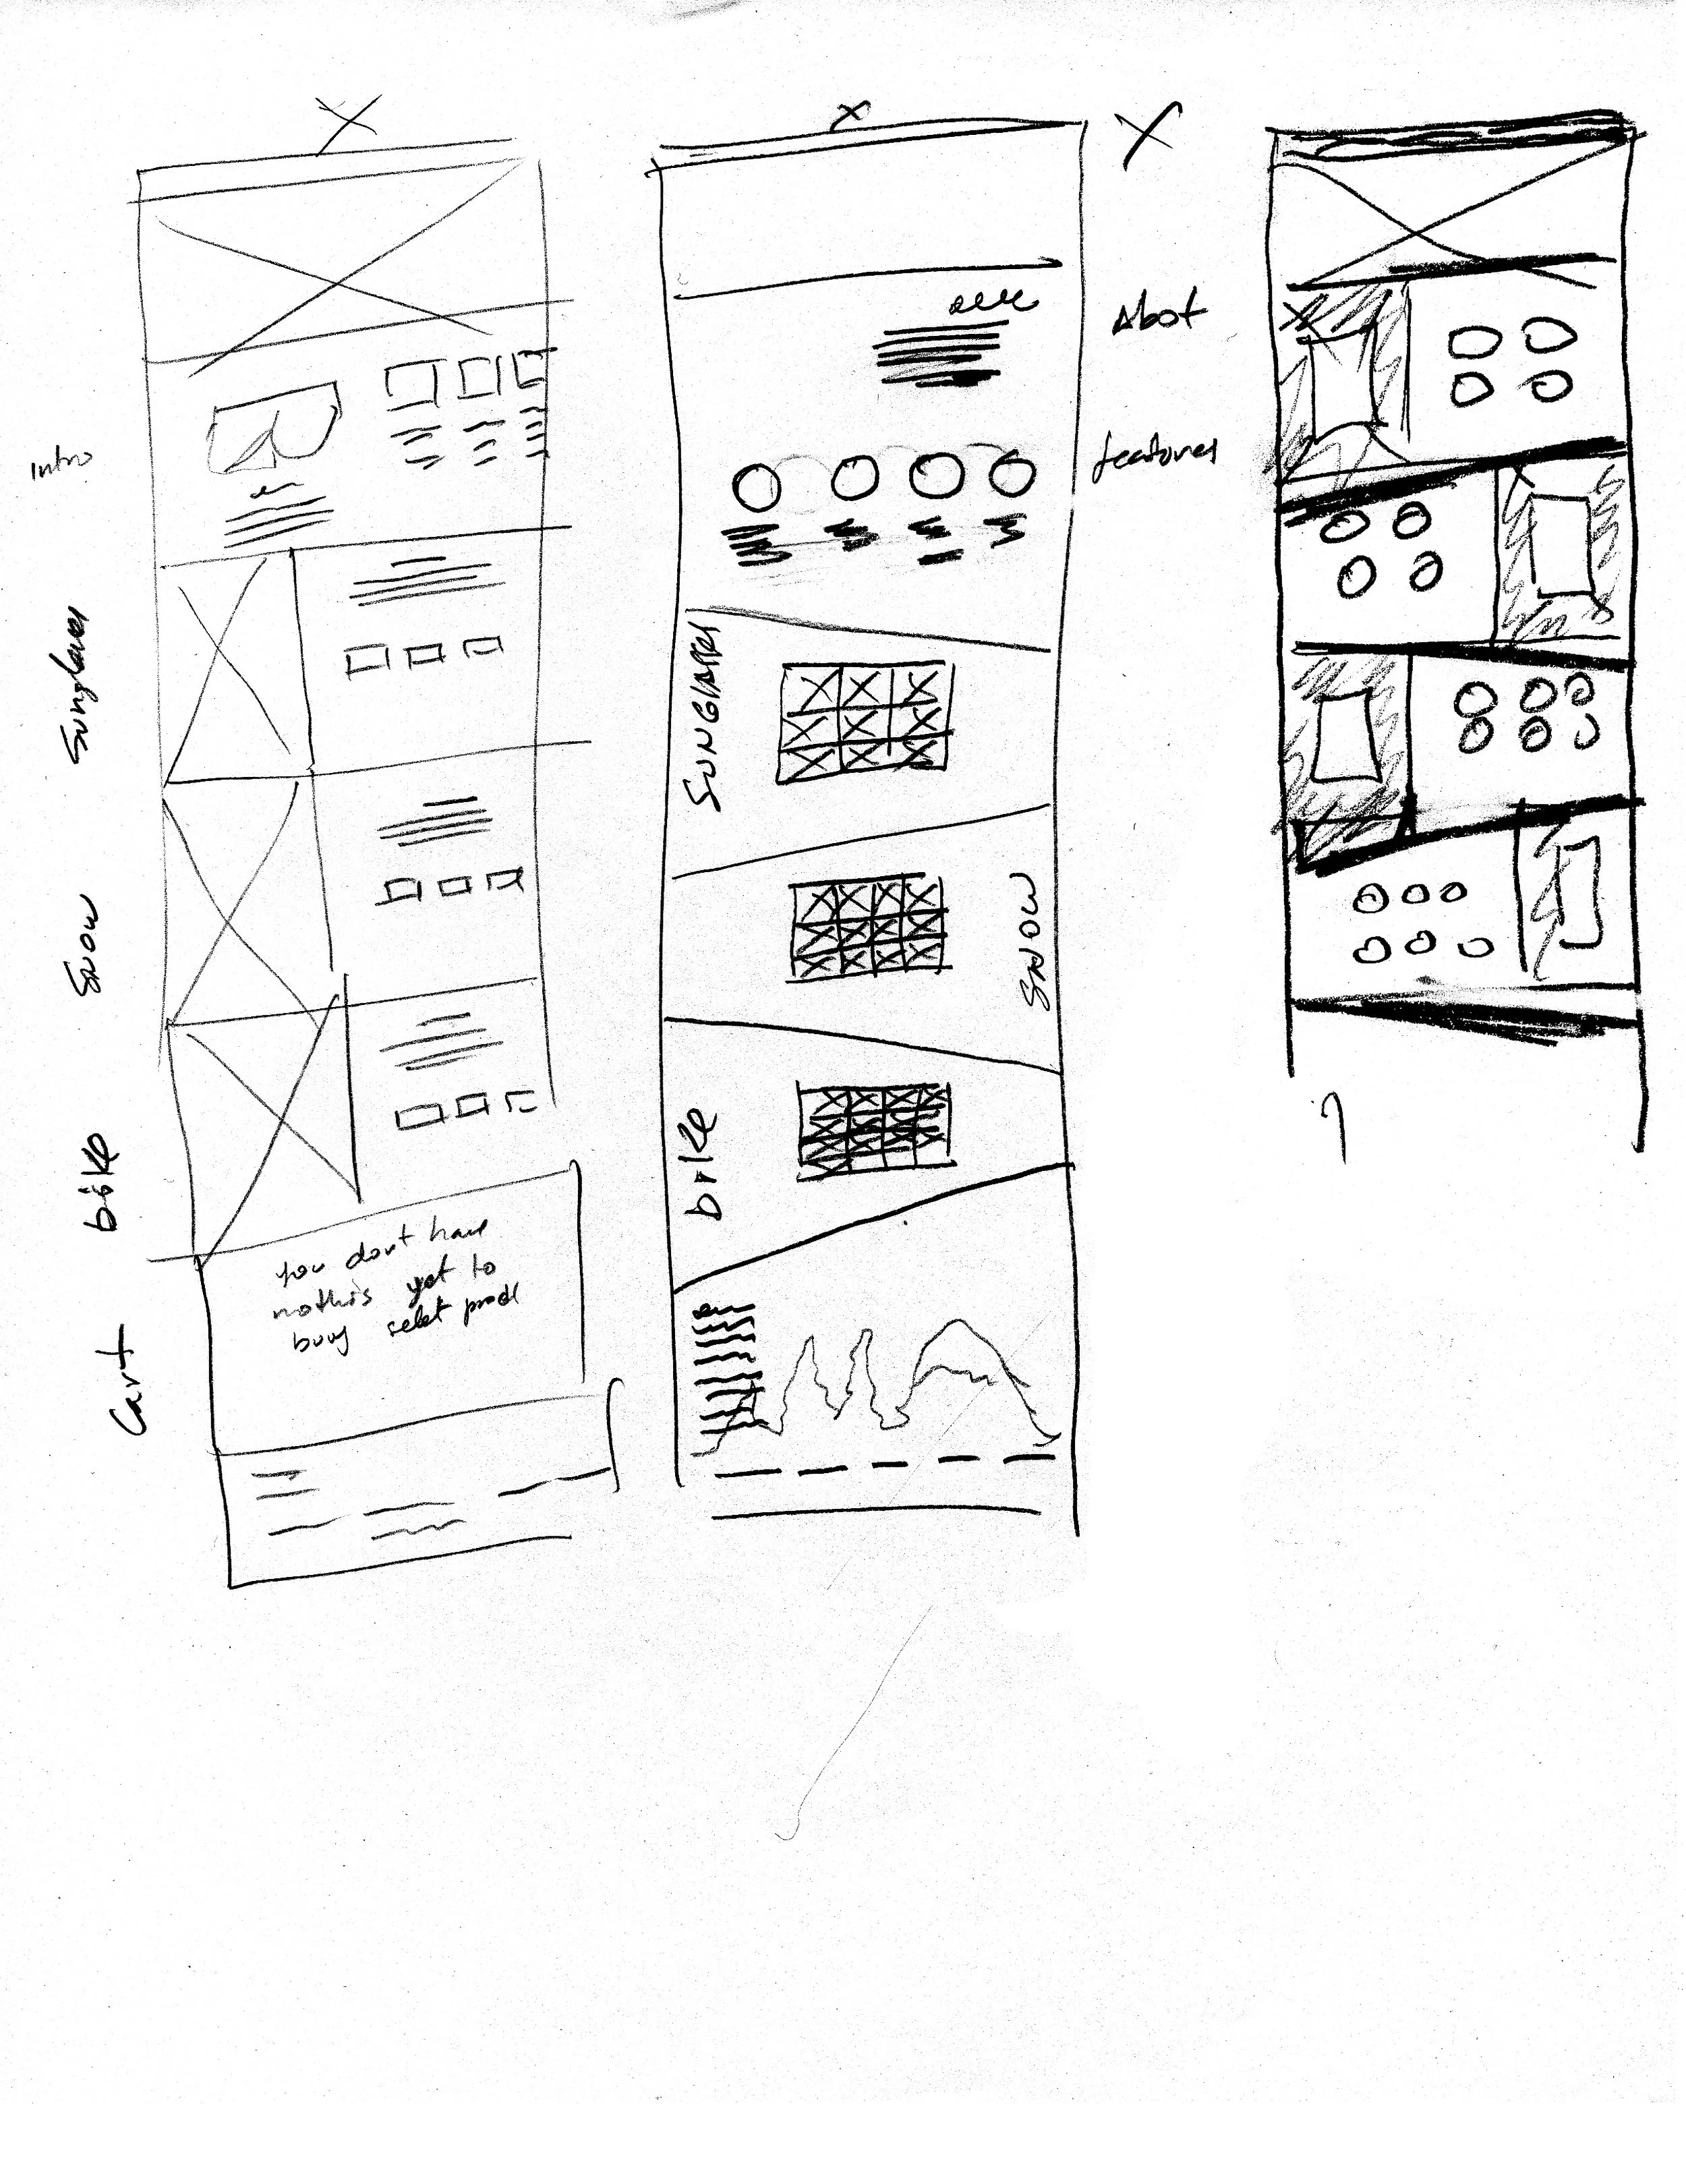 Intro
Sunglases
Snow
bike
Cart
you dont have
nothis yet to
buy selet prod
Abot
features
SUNGlASSES
SNOW
bike